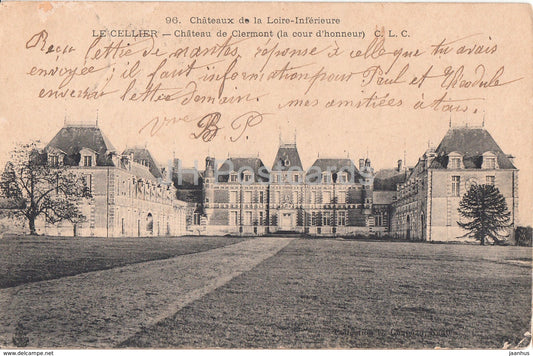 96. Châteaux de la Loire-Inférieure
LE CELLIER — Château de Clermont (la cour d'honneur) C. L. C.
Recu lettre de nantes, réponse à celle que tu avais
envoyée; il faut information pour Paul et
en verrai lettre demain. mes amitiées à tous.
B P
Collection